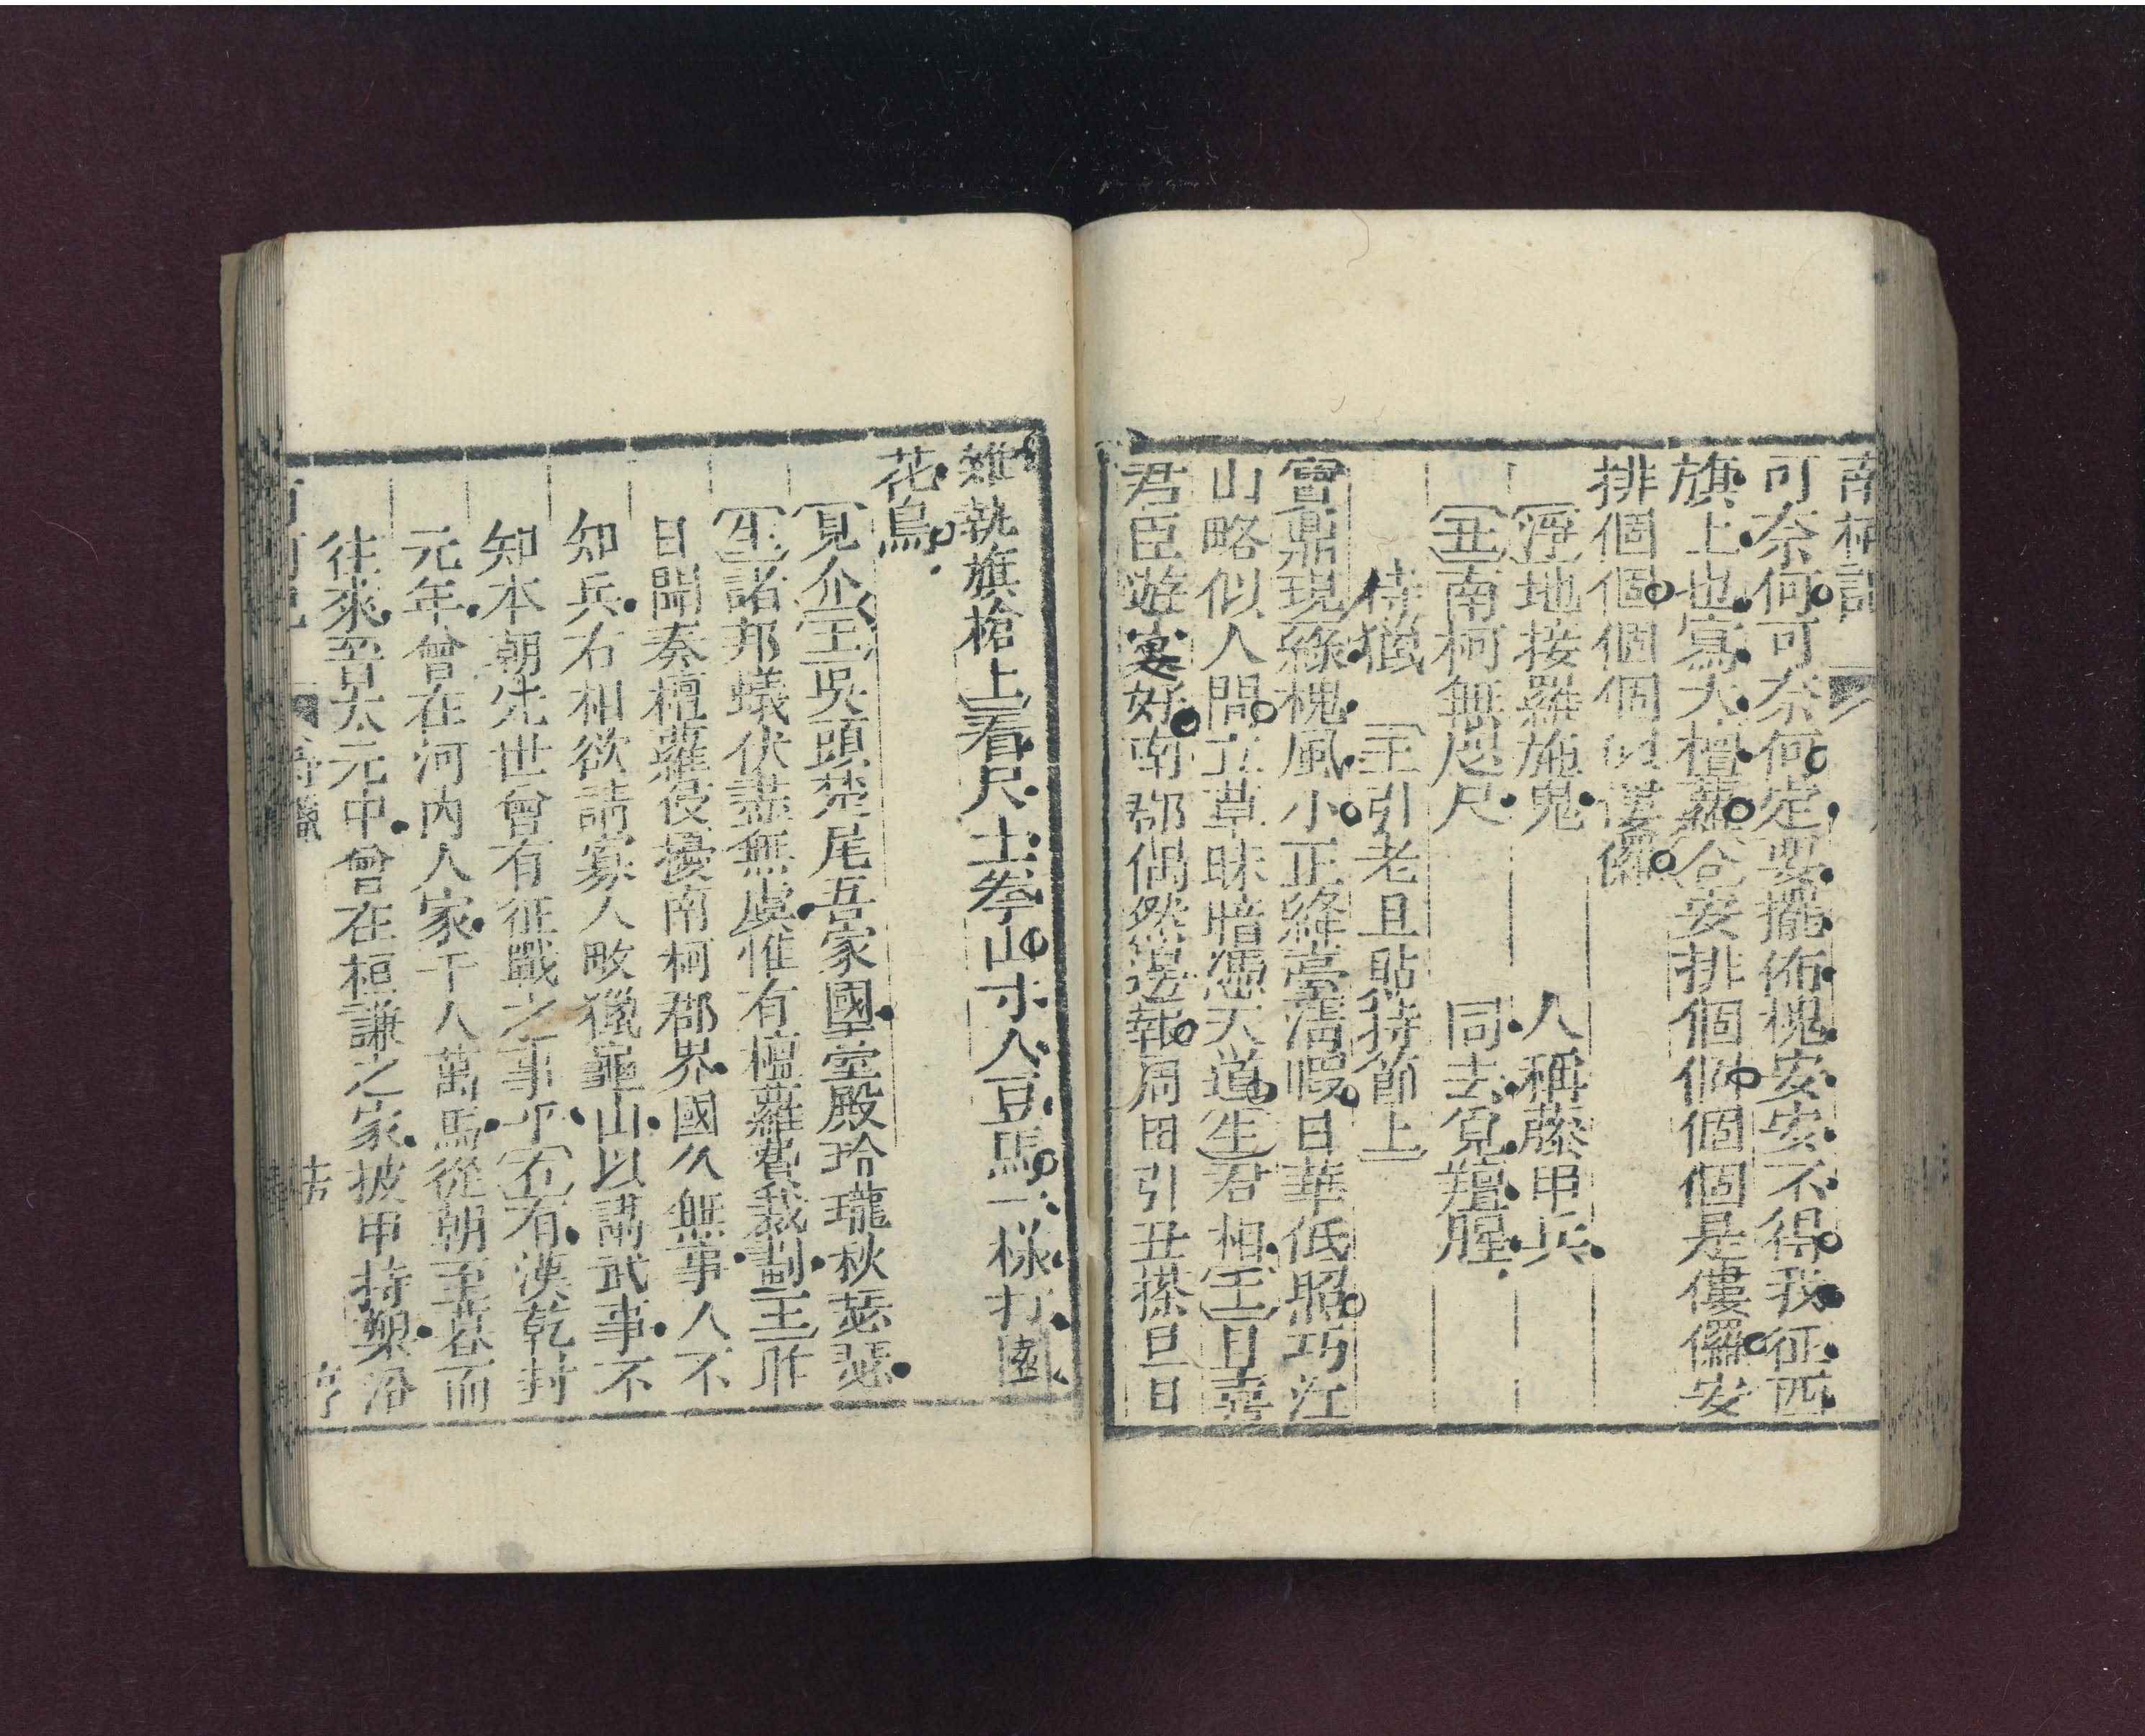 南柯記
可奈何可奈何定要擺佈槐安安不得我征西
旗上也寫大檀蘿合安排個個個個是僂儸安
排個個個個似僂儸
淨地接羅施鬼 人稱藤甲兵
丑南柯無咫尺 同去覓羶腥
侍獵 王引老旦貼持節上
寶鼎現綠槐風小正絳臺清暇日華低照巧江
山略似人間立草昧暗憑天道生君相王日喜
君臣遊宴好南郡偶然邊報周田引丑搽旦日
雜執旗槍上看尺土拳山寸人豆馬一樣打圍
花鳥
見介王吳頭楚尾吾家國室殿玲瓏秋瑟瑟
生諸邦蟻伏盡無虞惟有檀蘿費裁劃王昨
日聞奏檀蘿侵擾南柯郡界國久無事人不
知兵右相欲請寡人畋獵龜山以講武事不
知本朝先世曾有征戰之事乎右有漢乾封
元年曾在河內人家千人萬馬從朝至暮而
往來晉太元中曾在桓謙之家披甲持槊沿
侍獵